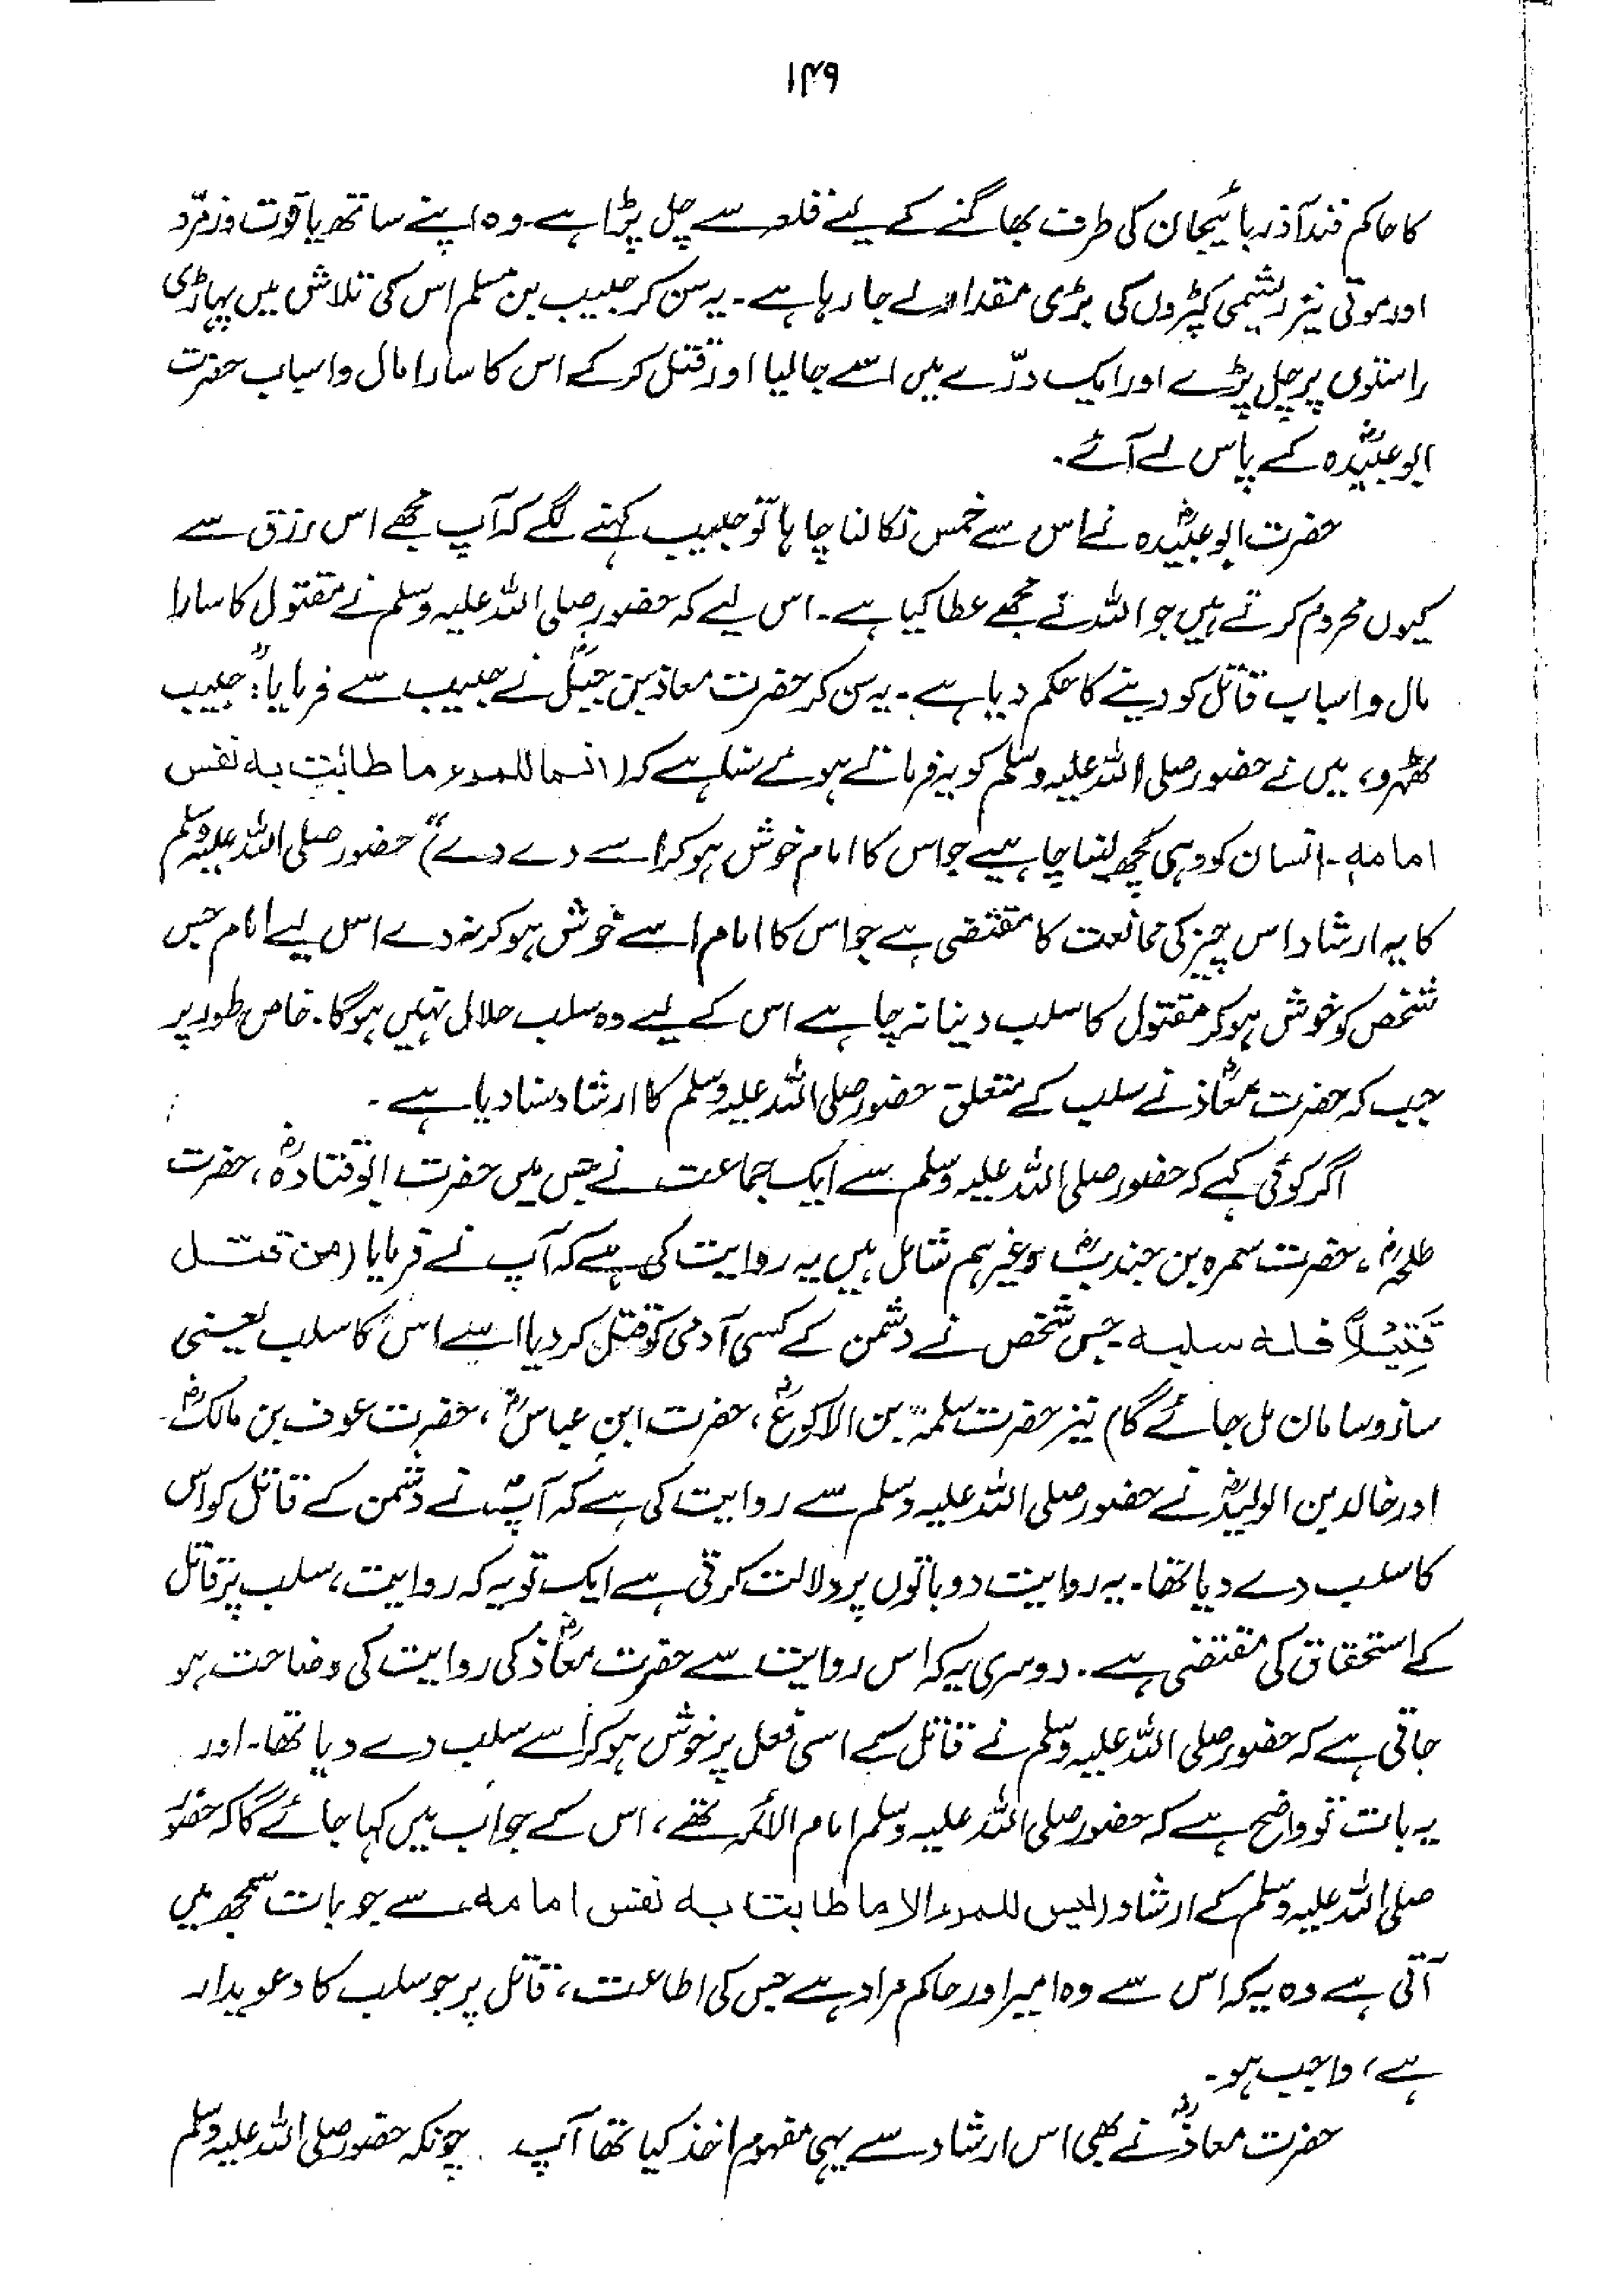 ۱۴۹
کا حاکم قندآذربائیجان کی طرف بھاگنے کے لیے قلعہ سے چل پڑا ہے۔ وہ اپنے ساتھ یاقوت وزمرّد
اور موتی نیز ریشمی کپڑوں کی بڑی مقدار لے جا رہا ہے۔ یہ سن کر حبیب بن مسلم اس کی تلاش میں پہاڑی
راستوں پر چل پڑے اور ایک درّے میں اسے جا لیا اور قتل کر کے اس کا سارا مال و اسباب حضرت
ابوعبیدہؓ کے پاس لے آئے۔
حضرت ابوعبیدہؓ نے اس سے خمس نکالنا چاہا تو حبیب کہنے لگے کہ آپ مجھے اس رزق سے
کیوں محروم کرتے ہیں جو اللہ نے مجھے عطا کیا ہے۔ اس لیے کہ حضور صلی اللہ علیہ وسلم نے مقتول کا سارا
مال و اسباب قاتل کو دینے کا حکم دیا ہے۔ یہ سن کر حضرت معاذ بن جبلؓ نے حبیب سے فرمایا: "حبیب
ٹھہرو، میں نے حضور صلی اللہ علیہ وسلم کو یہ فرماتے ہوئے سنا ہے کہ (انما للمرء ما طابت به نفس
امامه۔ انسان کو وہی کچھ لینا چاہیے جو اس کا امام خوش ہو کر اسے دے دے)" حضور صلی اللہ علیہ وسلم
کا یہ ارشاد اس چیز کی ممانعت کا مقتضی ہے جو اس کا امام اسے خوش ہو کر نہ دے اس لیے امام جس
شخص کو خوش ہو کر مقتول کا سلب دینا نہ چاہے اس کے لیے وہ سلب حلال نہیں ہوگا۔ خاص طور پر
جب کہ حضرت معاذؓ نے سلب کے متعلق حضور صلی اللہ علیہ وسلم کا ارشاد سنا دیا ہے۔
اگر کوئی کہے کہ حضور صلی اللہ علیہ وسلم سے ایک جماعت نے جس میں حضرت ابوقتادہؓ، حضرت
طلحہؓ، حضرت سمرہ بن جندبؓ وغیرہم شامل ہیں یہ روایت کی ہے کہ آپ نے فرمایا (من قتل
قَتِيْلاً فله سلبه جس شخص نے دشمن کے کسی آدمی کو قتل کر دیا اسے اس کا سلب یعنی
ساز و سامان مل جائے گا) نیز حضرت سلمہ بن الاکوعؓ، حضرت ابن عباسؓ، حضرت عوف بن مالکؓ
اور خالد بن الولیدؓ نے حضور صلی اللہ علیہ وسلم سے روایت کی ہے کہ آپؐ نے دشمن کے قاتل کو اس
کا سلب دے دیا تھا۔ یہ روایت دو باتوں پر دلالت کرتی ہے ایک تو یہ کہ روایت، سلب پر قاتل
کے استحقاق کی مقتضی ہے۔ دوسری یہ کہ اس روایت سے حضرت معاذؓ کی روایت کی وضاحت ہو
جاتی ہے کہ حضور صلی اللہ علیہ وسلم نے قاتل کے اسی فعل پر خوش ہو کر اسے سلب دے دیا تھا۔ اور
یہ بات تو واضح ہے کہ حضور صلی اللہ علیہ وسلم امام الائمہ تھے، اس کے جواب میں کہا جائے گا کہ حضور
صلی اللہ علیہ وسلم کے ارشاد (لیس للمرء الا ما طابت به نفس امامه، سے جو بات سمجھ میں
آتی ہے وہ یہ کہ اس سے وہ امیر اور حاکم مراد ہے جس کی اطاعت، قاتل پر جو سلب کا دعویدار
ہے، واجب ہو۔
حضرت معاذؓ نے بھی اس ارشاد سے یہی مفہوم اخذ کیا تھا آپ چونکہ حضور صلی اللہ علیہ وسلم